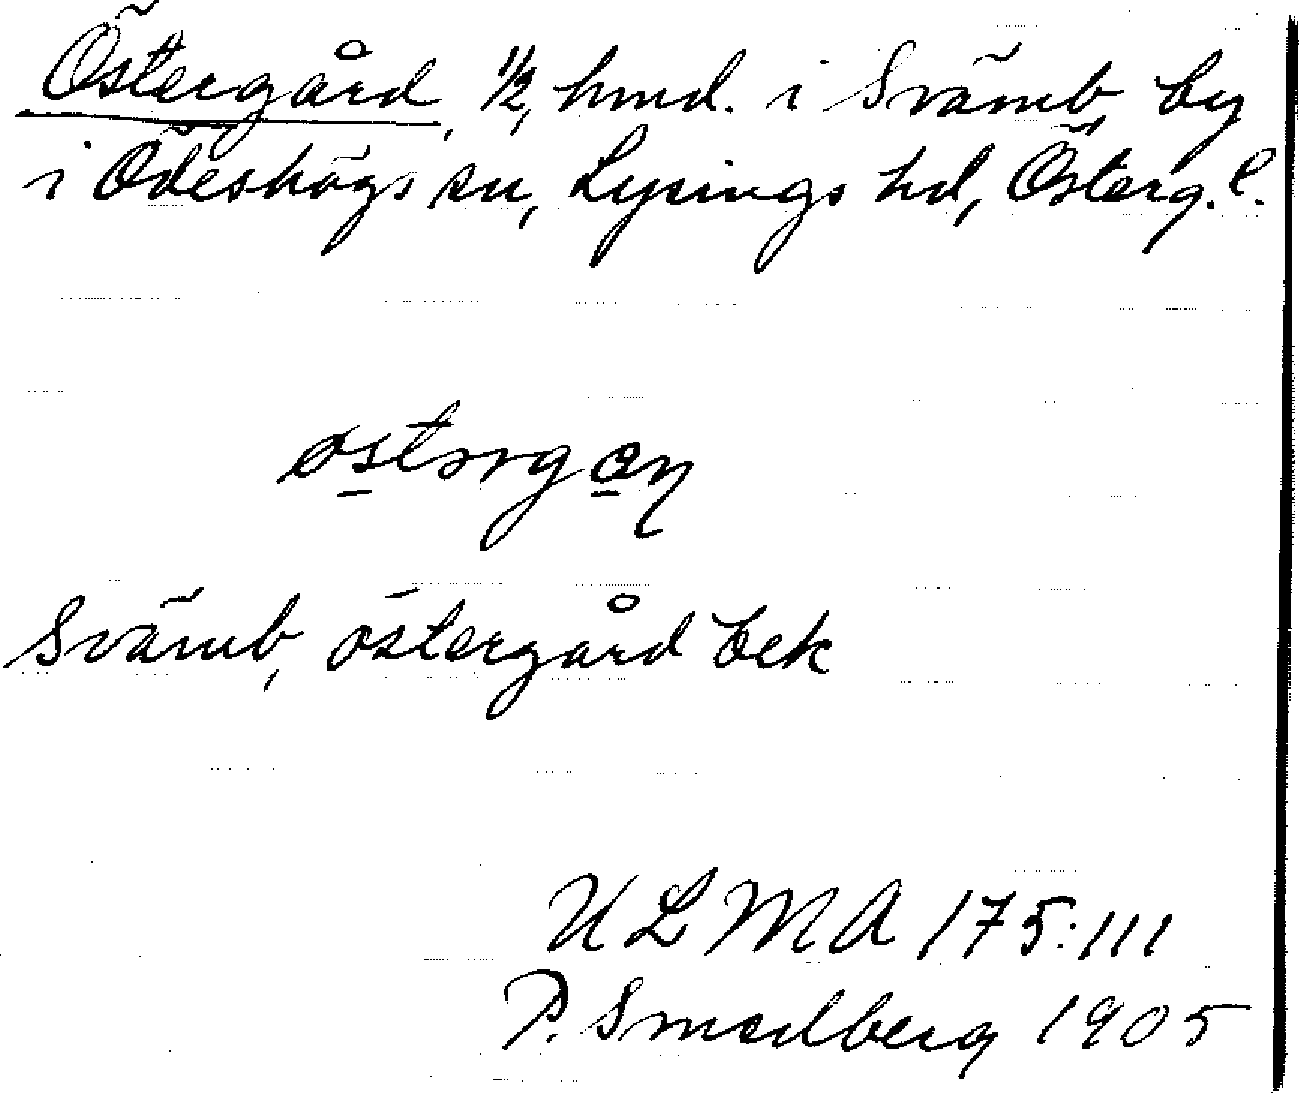 Östergård, 1/2, hmd. i Svämb by
i Ödeshögs sn, Lysings hd, Österg. l.
Svämb, östergård bek
ULMA 175:111
P. Smedberg 1905